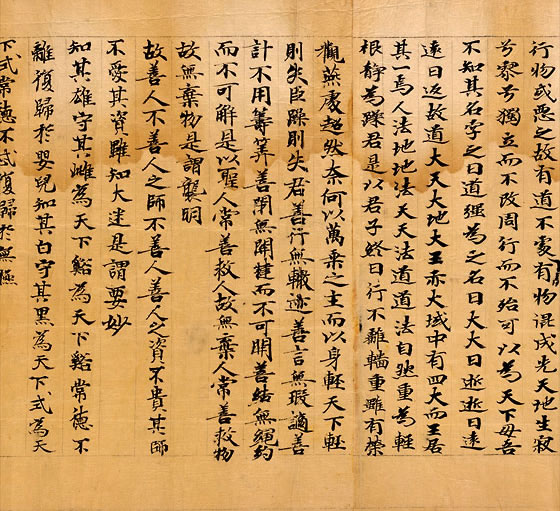 行物或惡之故有道不處有物混成先天地生寂
兮寥兮獨立而不改周行而不殆可以為天下母吾
不知其名字之曰道強為之名曰大大曰逝逝曰遠
遠曰返故道大天大地大王亦大域中有四大而王居
其一焉人法地地法天天法道道法自然重為輕
根靜為躁君是以君子終日行不離輜重雖有榮
觀燕處超然奈何以萬乘之主而以身輕天下輕
則失臣躁則失君善行無轍迹善言無瑕適善
計不用籌筭善閉無關揵而不可開善結無繩約
而不可解是以聖人常善救人故無棄人常善救物
故無棄物是謂襲明
故善人不善人之師不善人善人之資不貴其師
不愛其資雖知大迷是謂要妙
知其雄守其雌為天下谿為天下谿常德不
離復歸於嬰兒知其白守其黑為天下式為天
下式常德不忒復歸於無極